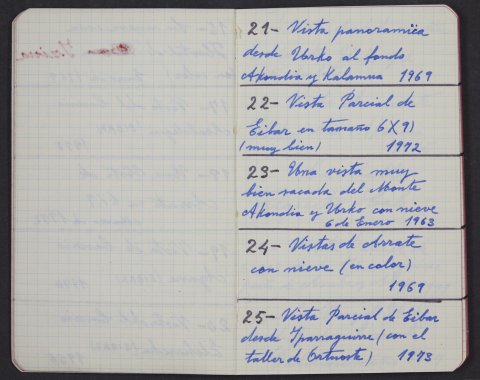 21- Vista panoramica
desde Urko al fondo
Akondia y Kalamua 1969
22- Vista Parcial de
Eibar en tamaño 6X9)
(muy bien) 1972
23- Una vista muy
bien sacada del Monte
Akondia y Urko con nieve
6 de Enero 1963
24- Vistas de Arrate
con nieve (en color)
1969
25- Vista Parcial de Eibar
desde Yparraguirre (con el
taller de Ortuoste) 1973